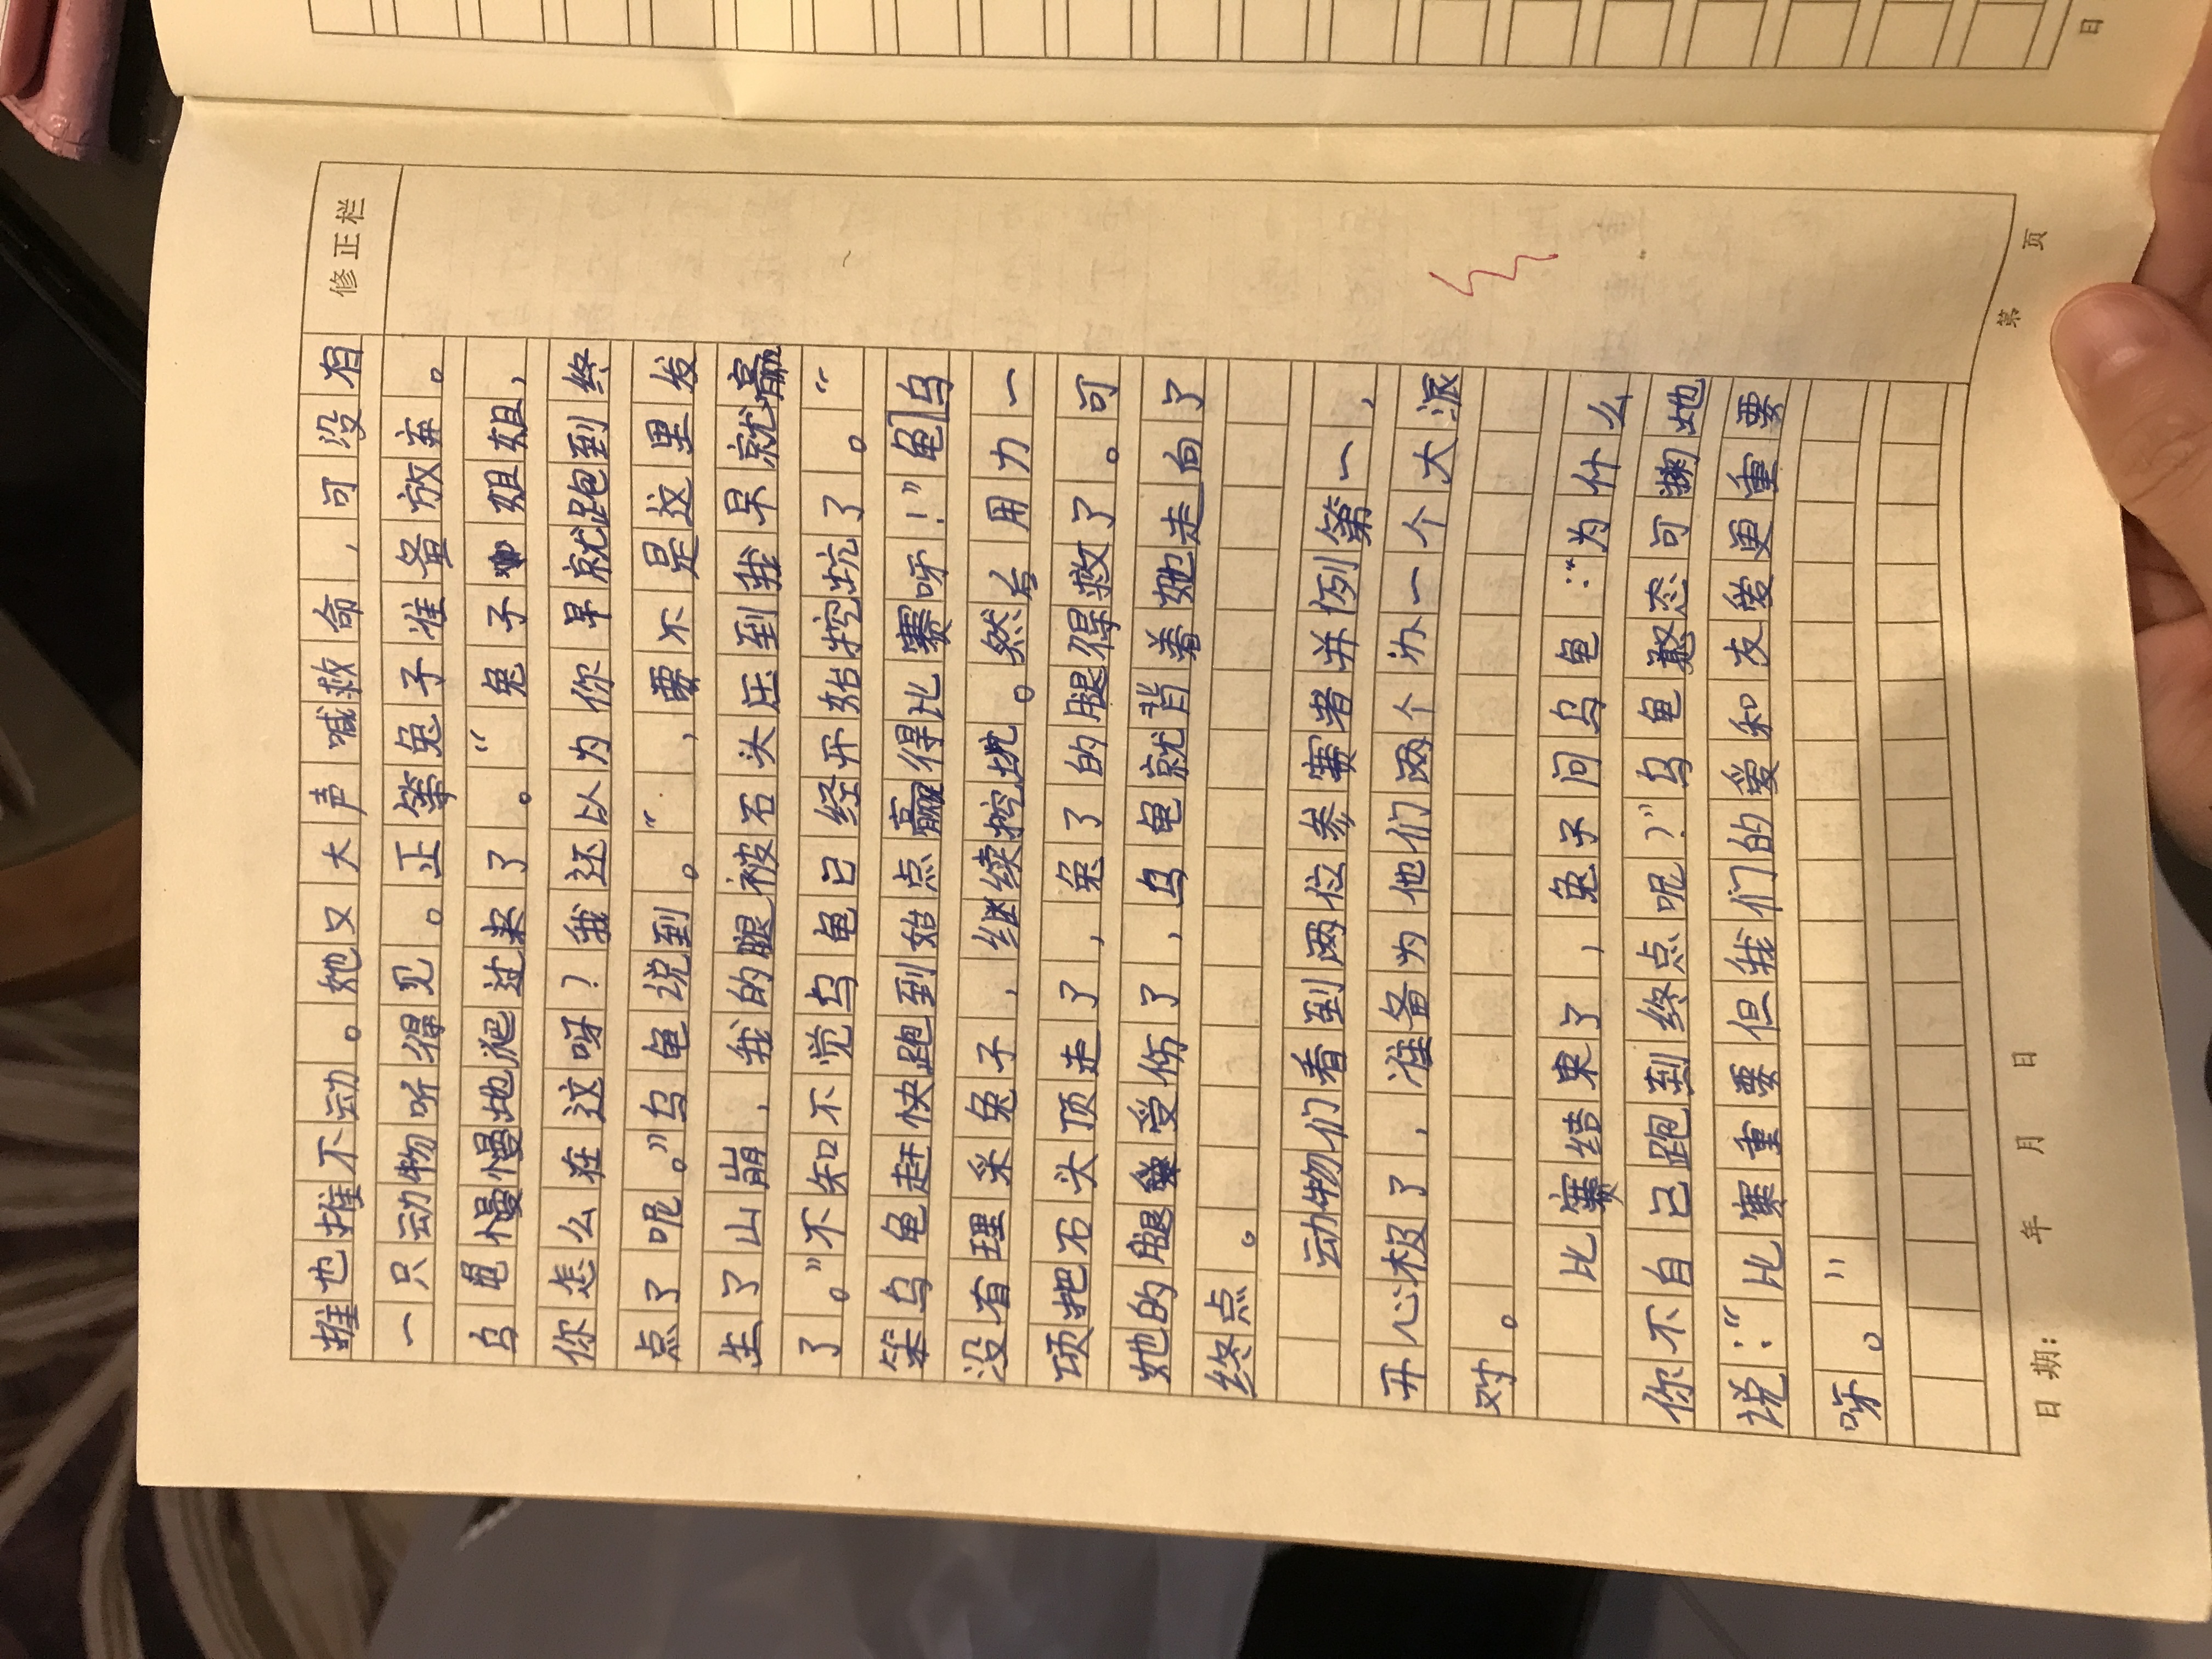 修正栏
推也推不动。她又大声喊救命，可没有
一只动物听得见。正等兔子准备放弃。
乌龟慢慢地爬过来了。“兔子姐姐，
你怎么在这呀？我还以为你早就跑到终
点了呢。”乌龟说到。“，要不是这里发
生了山崩，我的腿被石头压到我早就赢
了。”不知不觉乌龟已经开始挖坑了。“
笨乌龟赶快跑到始点赢得比赛呀！”龟乌
没有理采兔子，继续挖坑。然后用力一
顶把石头顶走了，兔了的腿得救了。可
她的腿受伤了，乌龟就背着她走向了
终点。
动物们看到两位参赛者并列第一，
开心极了，准备为他们两个办一个大派
对。
比赛结束了，兔子问乌龟：“为什么
你不自己跑到终点呢？”乌龟憨态可掬地
说：“比赛重要但我们的爱和友爱更重要
呀。”
日期： 年 月 日 第 页
日